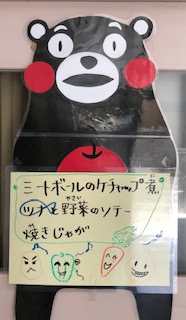 ミートボールのケチャップ煮
ツナと野菜のソテー
焼きじゃが